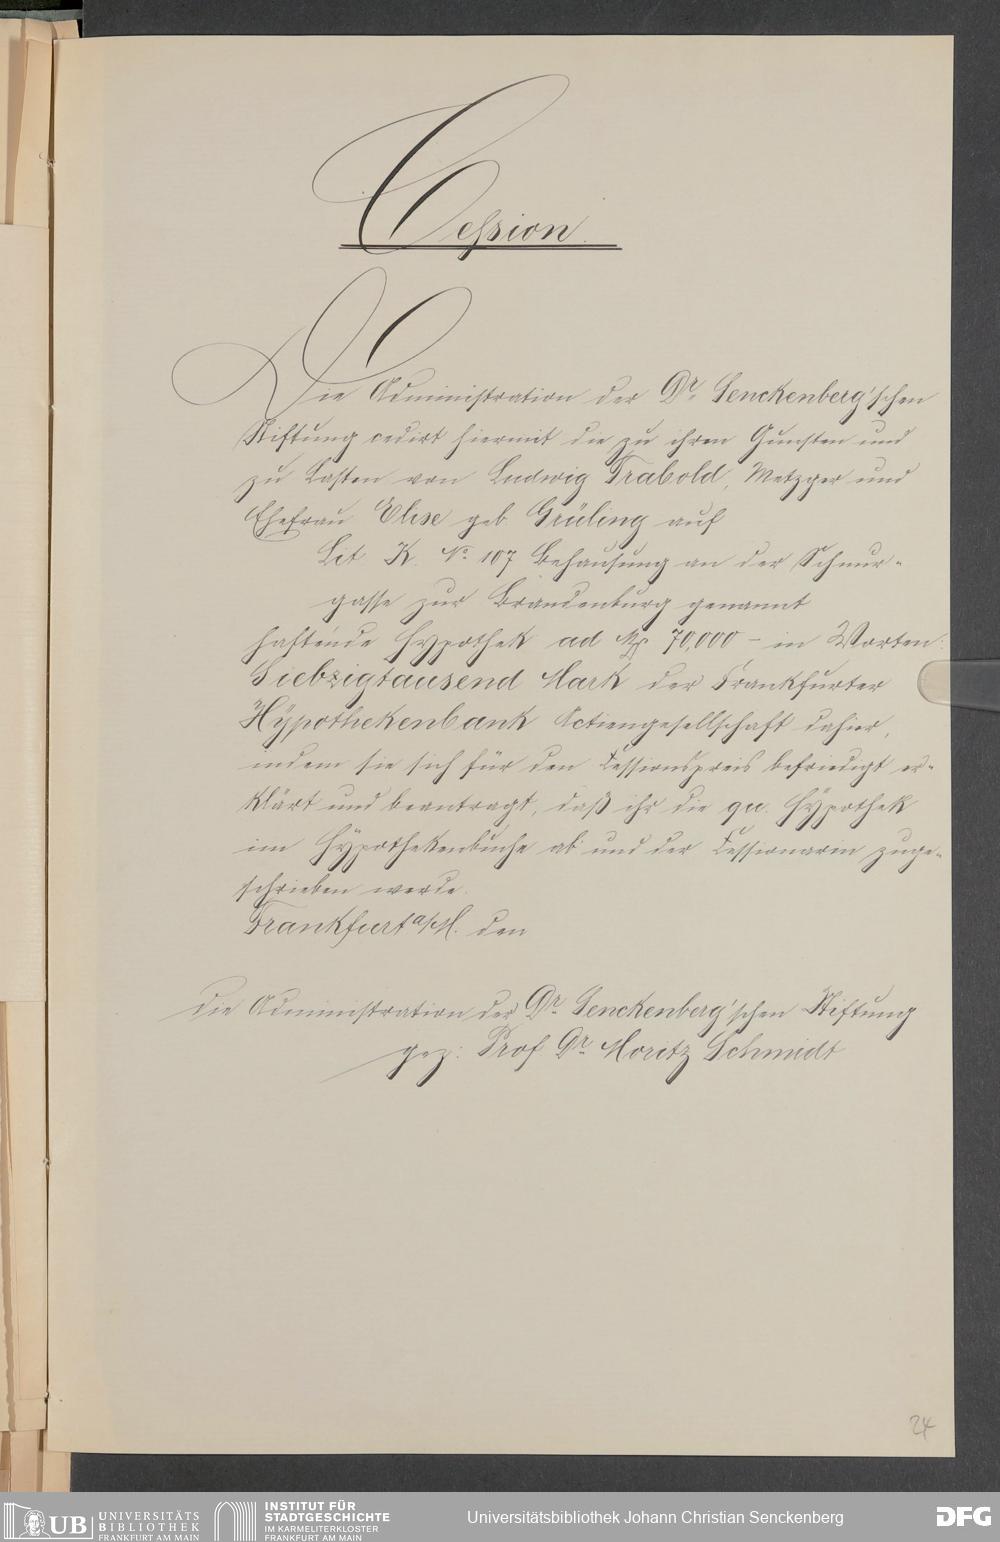 Cession.
Die Administration der Dr. Senckenberg'schen
Stiftung cedirt hiermit die zu ihren Gunsten und
zu Lasten von Ludwig Trabold, Metzger und
Ehefrau Elise geb. Grüling auf
Lit. K. No. 107 Behausung an der Schnur-
gasse zur Brandenburg genannt
haftende Hypothek ad Mk 70,000 – in Worten:
Siebzigtausend Mark der Frankfurter
Hypothekenbank Actiengesellschaft dahier,
indem sie sich für den Cessionspreis befriedigt er-
klärt und beantragt, daß ihr die qu. Hypothek
im Hypothekenbuche ab und der Cessionarin zuge-
schrieben werde.
Frankfurt a/M. den
Die Administration der Dr. Senckenberg'schen Stiftung
gez: Prof. Dr. Moritz Schmidt
24
UB UNIVERSITÄTS
BIBLIOTHEK
FRANKFURT AM MAIN
INSTITUT FÜR
STADTGESCHICHTE
IM KARMELITERKLOSTER
FRANKFURT AM MAIN
Universitätsbibliothek Johann Christian Senckenberg
DFG